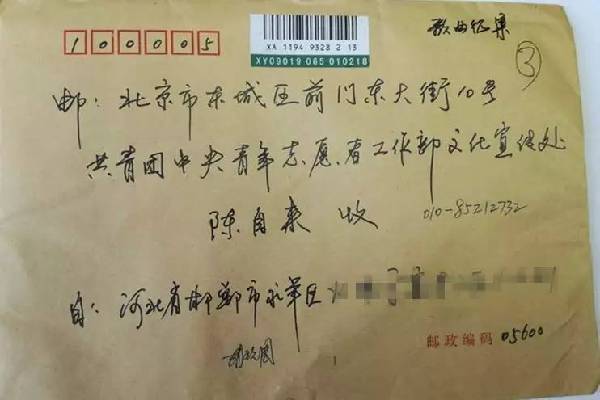 歌曲征集
③
100005
XA 1194 9328 2 13
XY09019 065 010218
邮：北京市东城区前门东大街10号
共青团中央青年志愿者工作部文化宣传处
陈自来 收 010-85212732
自：河北省邯郸市永年区
邮政编码 05600